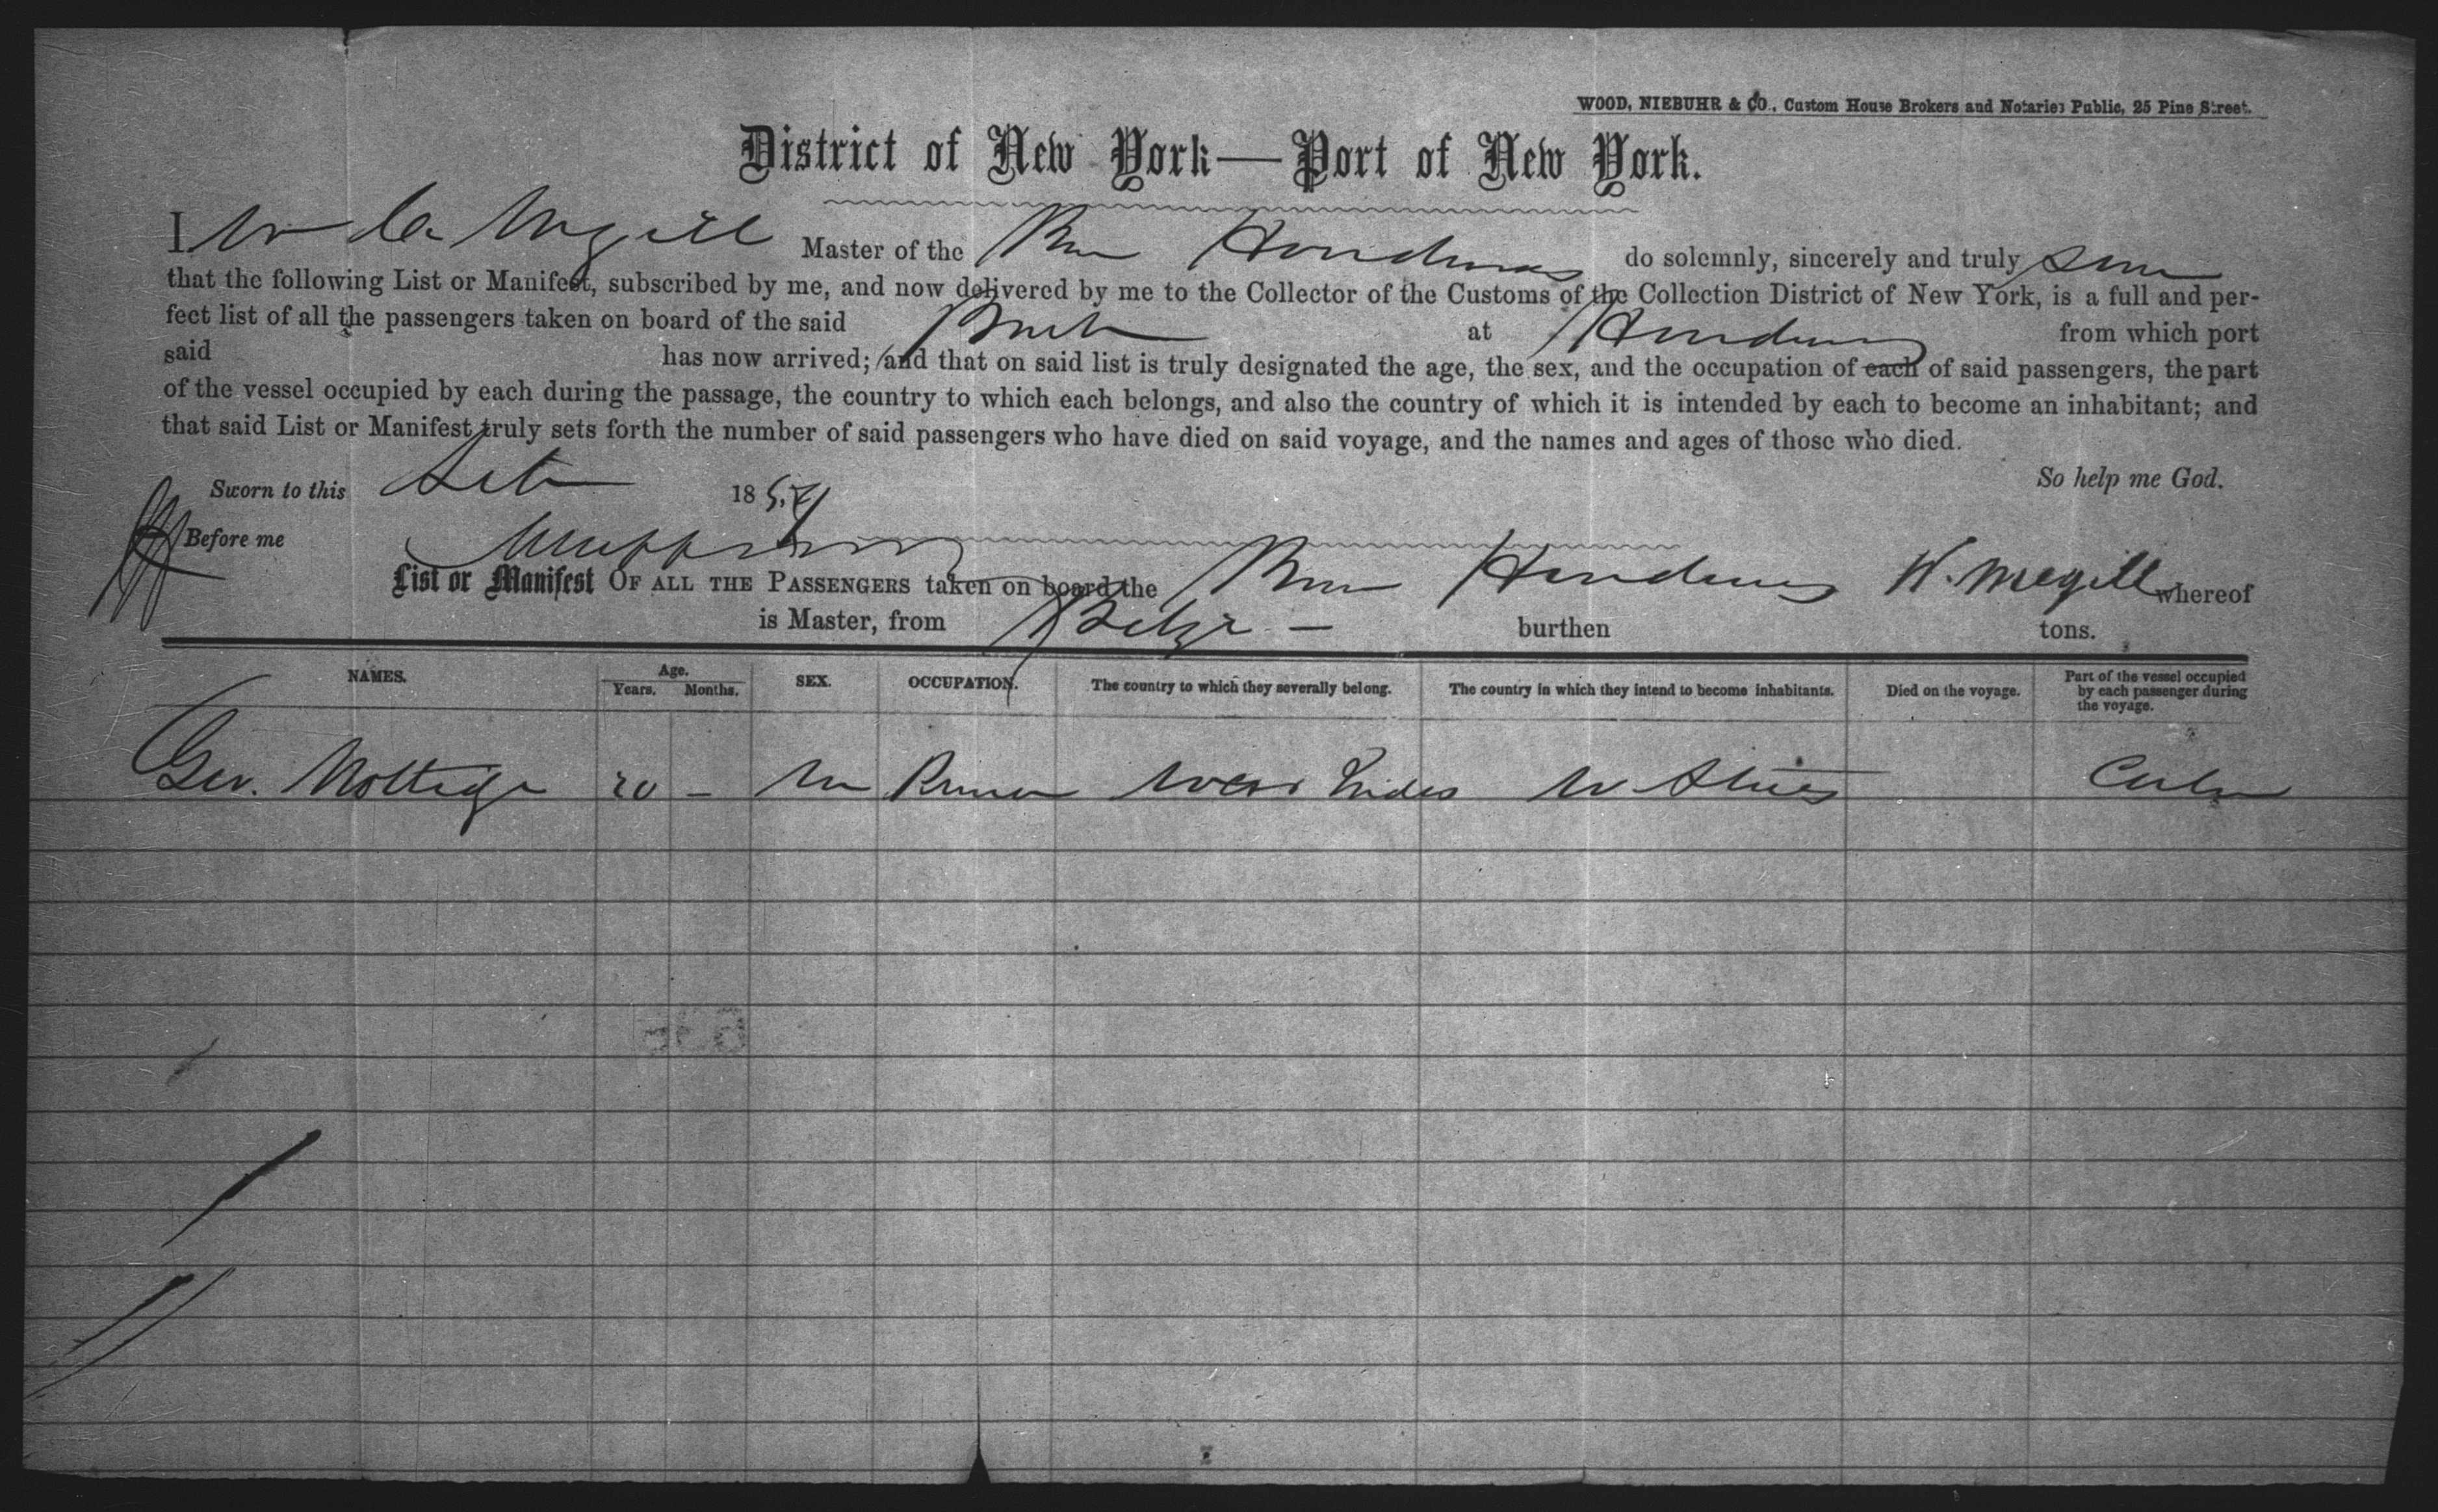 WOOD, NIEBUHR & CO., Custom House Brokers and Notaries Public, 25 Pine Street.
District of New York—Port of New York.
I, W Megill Master of the Honduras do solemnly, sincerely and truly
that the following List or Manifest, subscribed by me, and now delivered by me to the Collector of the Customs of the Collection District of New York, is a full and per-
fect list of all the passengers taken on board of the said at Honduras from which port
said has now arrived; and that on said list is truly designated the age, the sex, and the occupation of each of said passengers, the part
of the vessel occupied by each during the passage, the country to which each belongs, and also the country of which it is intended by each to become an inhabitant; and
that said List or Manifest truly sets forth the number of said passengers who have died on said voyage, and the names and ages of those who died.
So help me God.
Sworn to this 185
Before me
List or Manifest OF ALL THE PASSENGERS taken on board the Honduras W. Megill whereof
is Master, from Belize — burthen tons.
NAMES. Age. Years. Months. SEX. OCCUPATION. The country to which they severally belong. The country in which they intend to become inhabitants. Died on the voyage. Part of the vessel occupied by each passenger during the voyage.
Geo. Nottage 20 – M West Indes U States Cabin